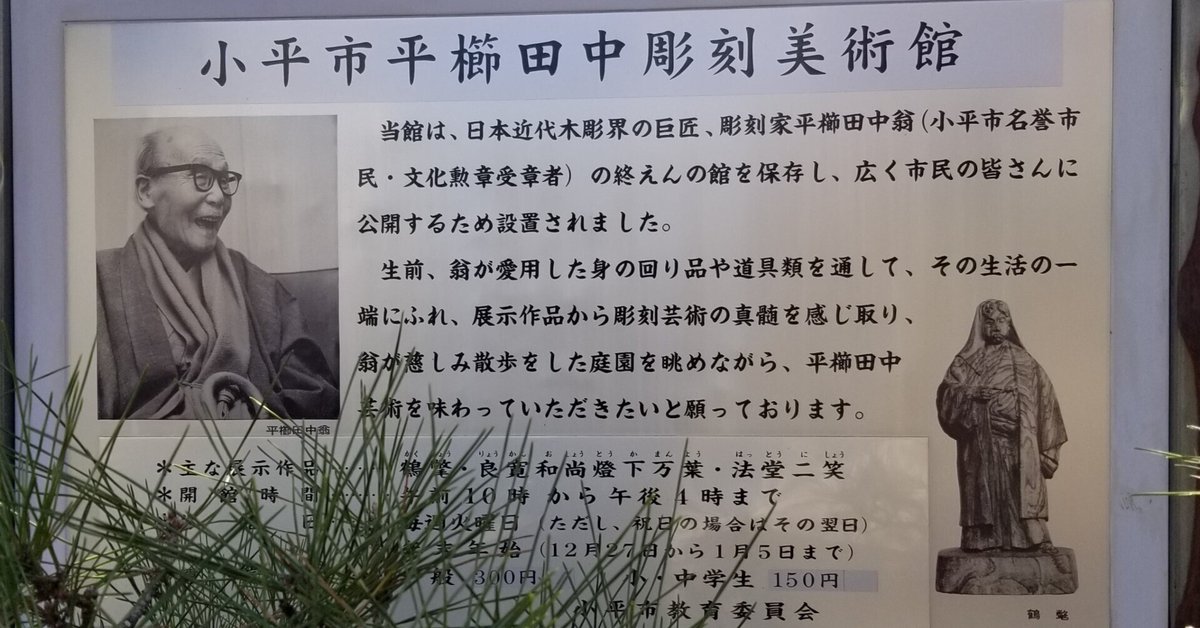 小平市平櫛田中彫刻美術館
当館は、日本近代木彫界の巨匠、彫刻家平櫛田中翁（小平市名誉市
民・文化勲章受章者）の終えんの館を保存し、広く市民の皆さんに
公開するため設置されました。
生前、翁が愛用した身の回り品や道具類を通して、その生活の一
端にふれ、展示作品から彫刻芸術の真髄を感じ取り、
翁が慈しみ散歩をした庭園を眺めながら、平櫛田中
芸術を味わっていただきたいと願っております。
平櫛田中翁
＊主な展示作品……鶴氅・良寛和尚燈下万葉・法堂二笑
＊開館時間……午前10時から午後4時まで
日 毎週火曜日（ただし、祝日の場合はその翌日）
年始（12月27日から1月5日まで）
般 300円 小・中学生 150円
小平市教育委員会
鶴氅